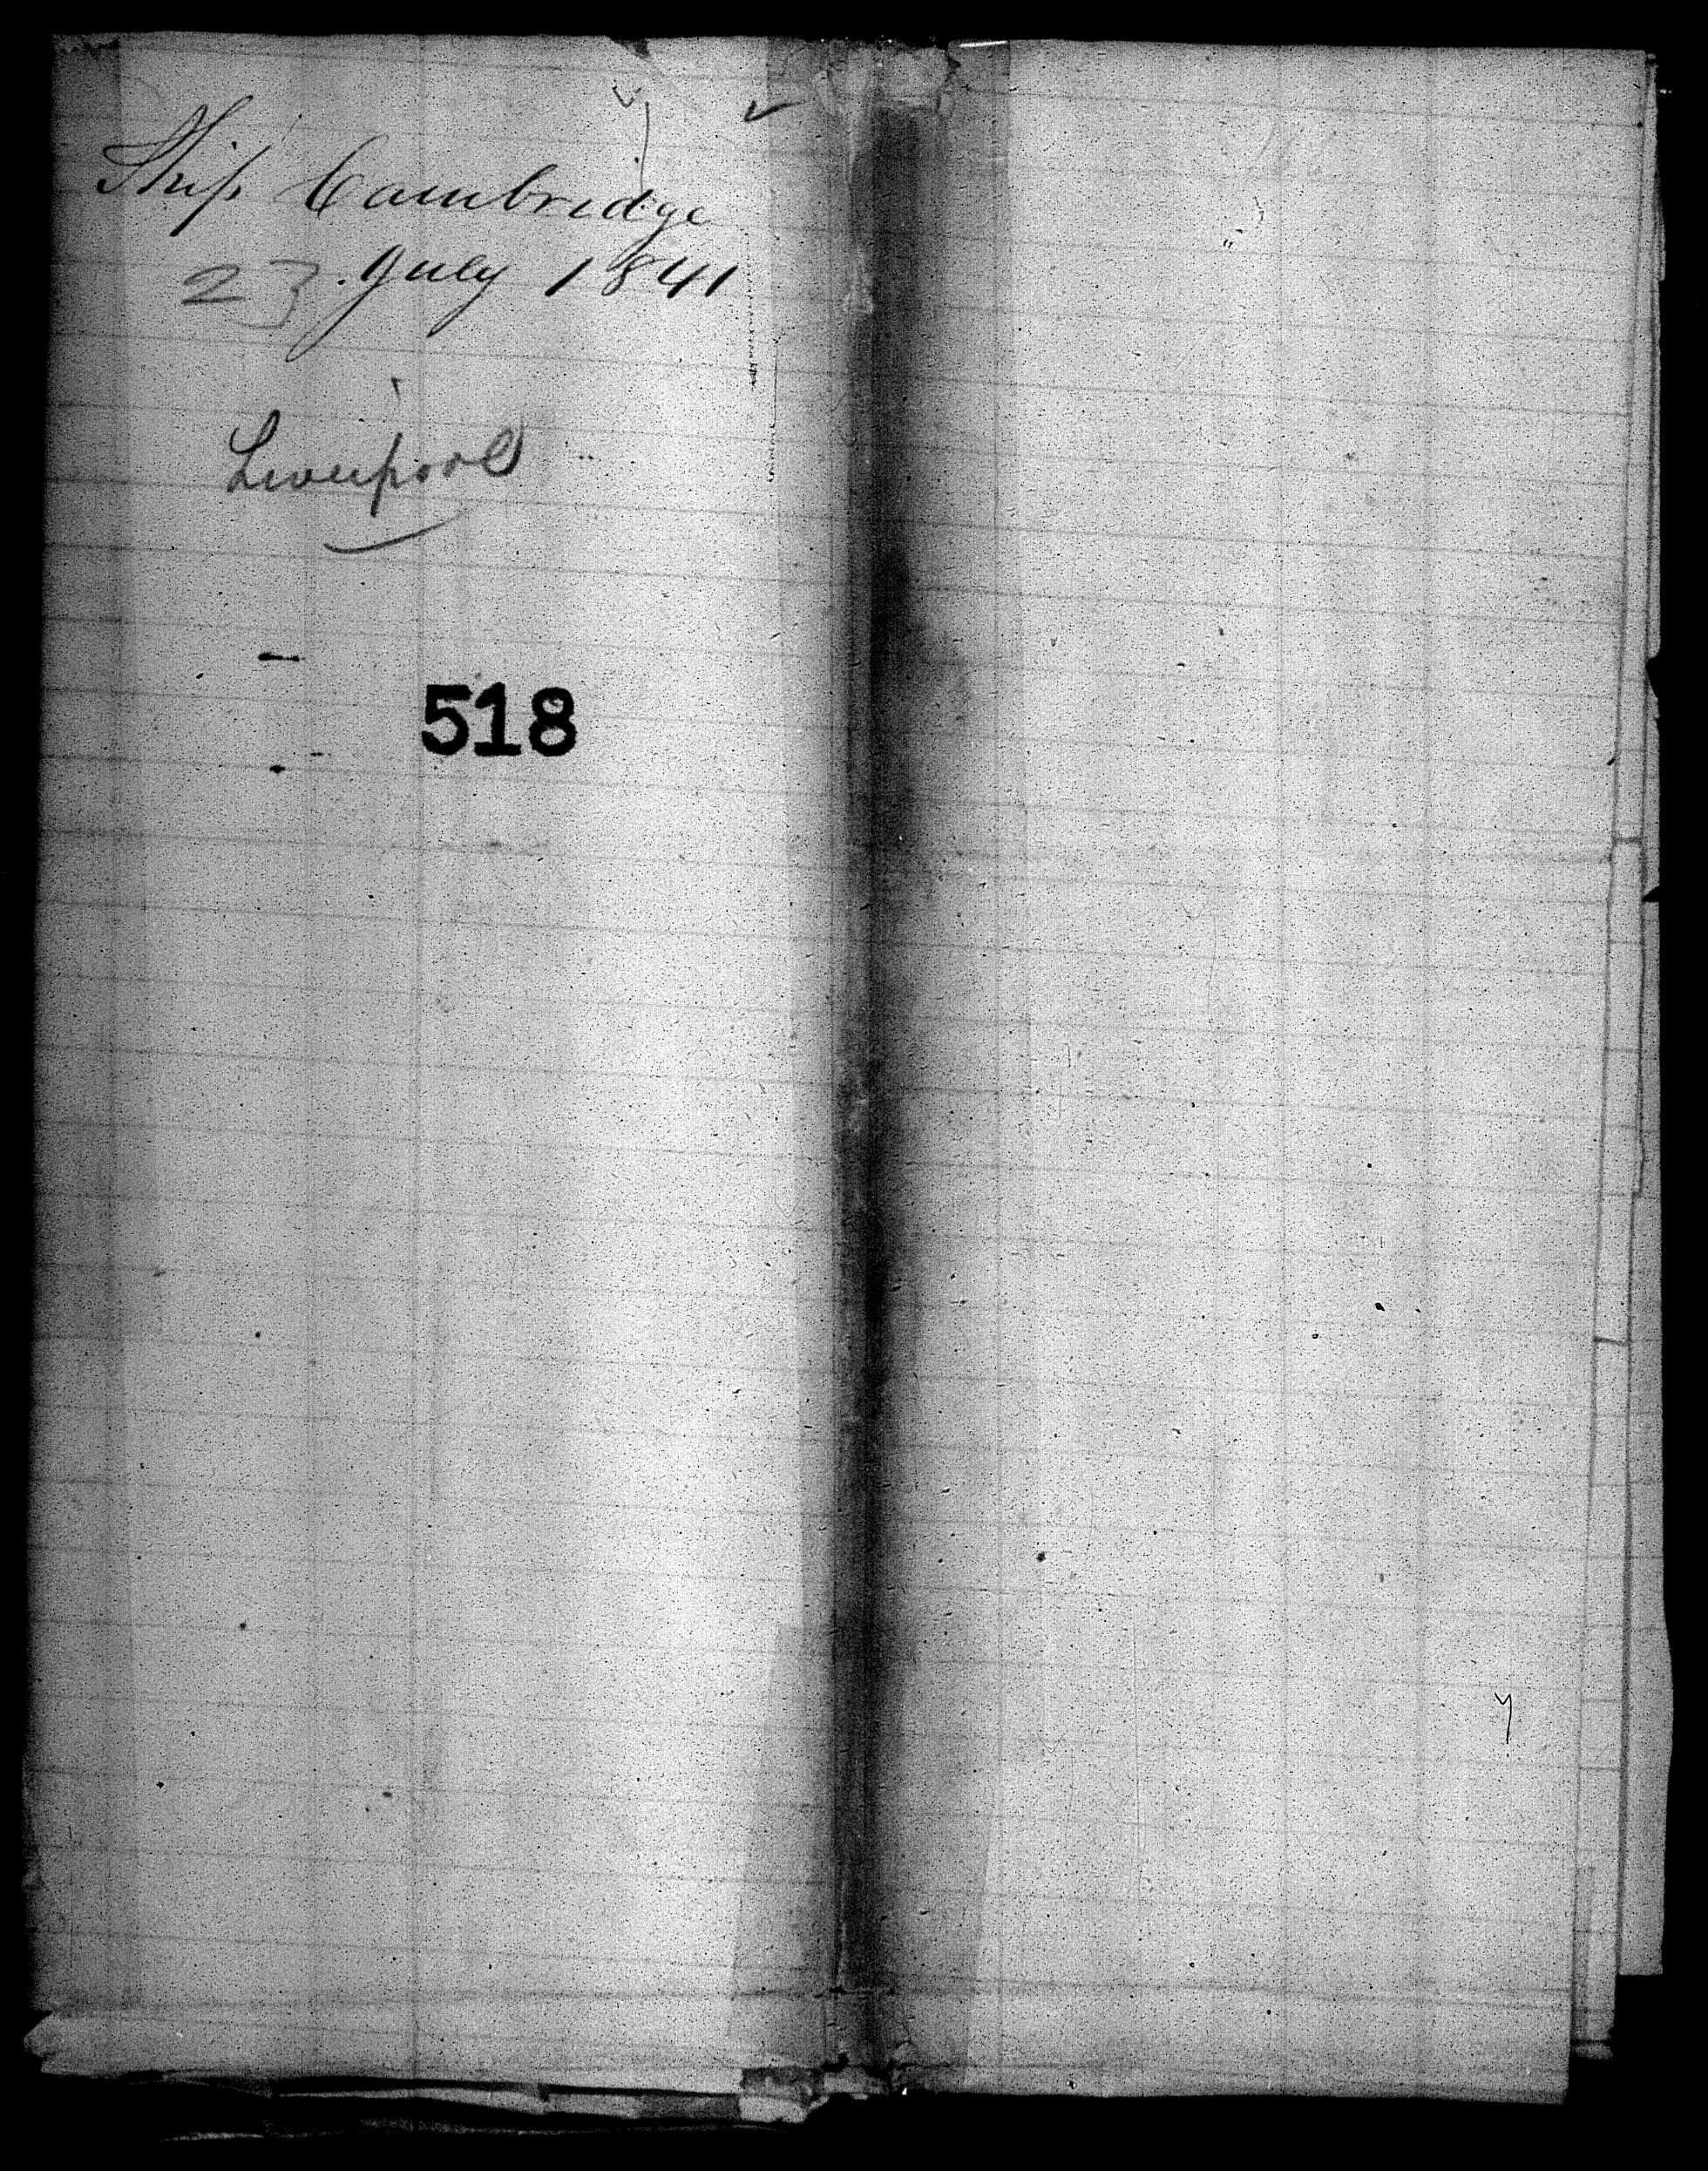 Ship Cambridge
23 July 1841
Liverpool
518